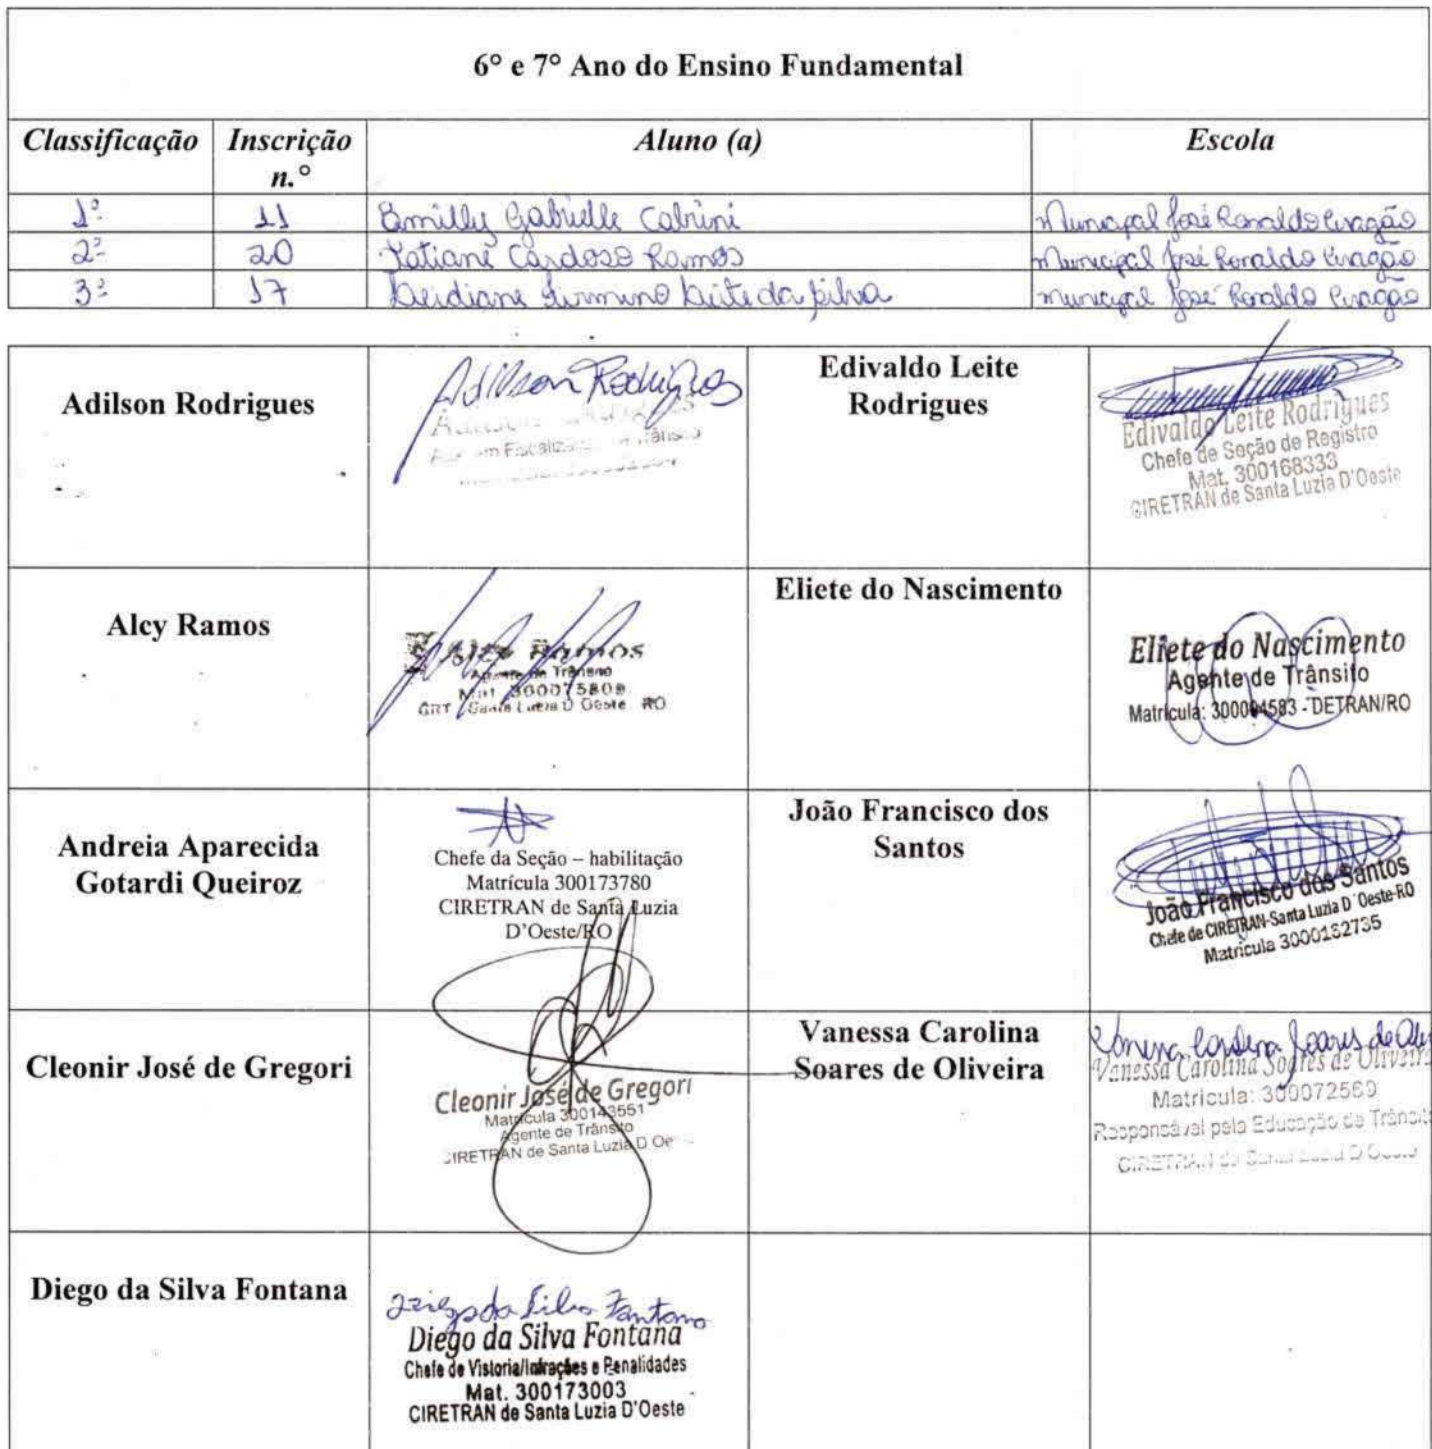 6° e 7° Ano do Ensino Fundamental
Classificação Inscrição n.° Aluno (a) Escola
1º 11 Emilly Gabrielle Cabrini Municipal José Ronaldo Aragão
2º 20 Tatiane Cardoso Ramos Municipal José Ronaldo Aragão
3º 17 Leidiane Firmino Leite da Silva Municipal José Ronaldo Aragão
Adilson Rodrigues
Adilson Rodrigues
Edivaldo Leite
Rodrigues
Edivaldo Leite Rodrigues
Chefe de Seção de Registro
Mat. 300168333
CIRETRAN de Santa Luzia D'Oeste
Alcy Ramos
Ramos
Agente de Trânsito
Mat. 300075809
Santa Luzia D Oeste RO
Eliete do Nascimento
Eliete do Nascimento
Agente de Trânsito
Matrícula: 300094583 - DETRAN/RO
Andreia Aparecida
Gotardi Queiroz
Chefe da Seção – habilitação
Matrícula 300173780
CIRETRAN de Santa Luzia
D'Oeste/RO
João Francisco dos
Santos
João Francisco dos Santos
Chefe de CIRETRAN-Santa Luzia D´Oeste-RO
Matrícula 3000152735
Cleonir José de Gregori
Cleonir José de Gregori
Matrícula 300143551
Agente de Trânsito
CIRETRAN de Santa Luzia D Oe
Vanessa Carolina
Soares de Oliveira
Vanessa Carolina Soares de Oliv
Vanessa Carolina Soares de Oliveira
Matrícula: 300072569
Responsável pela Educação de Trânsito
CIRETRAN de Santa Luzia D'Oeste
Diego da Silva Fontana
Diego da Silva Fontana
Diego da Silva Fontana
Chefe de Vistoria/Infrações e Penalidades
Mat. 300173003
CIRETRAN de Santa Luzia D'Oeste